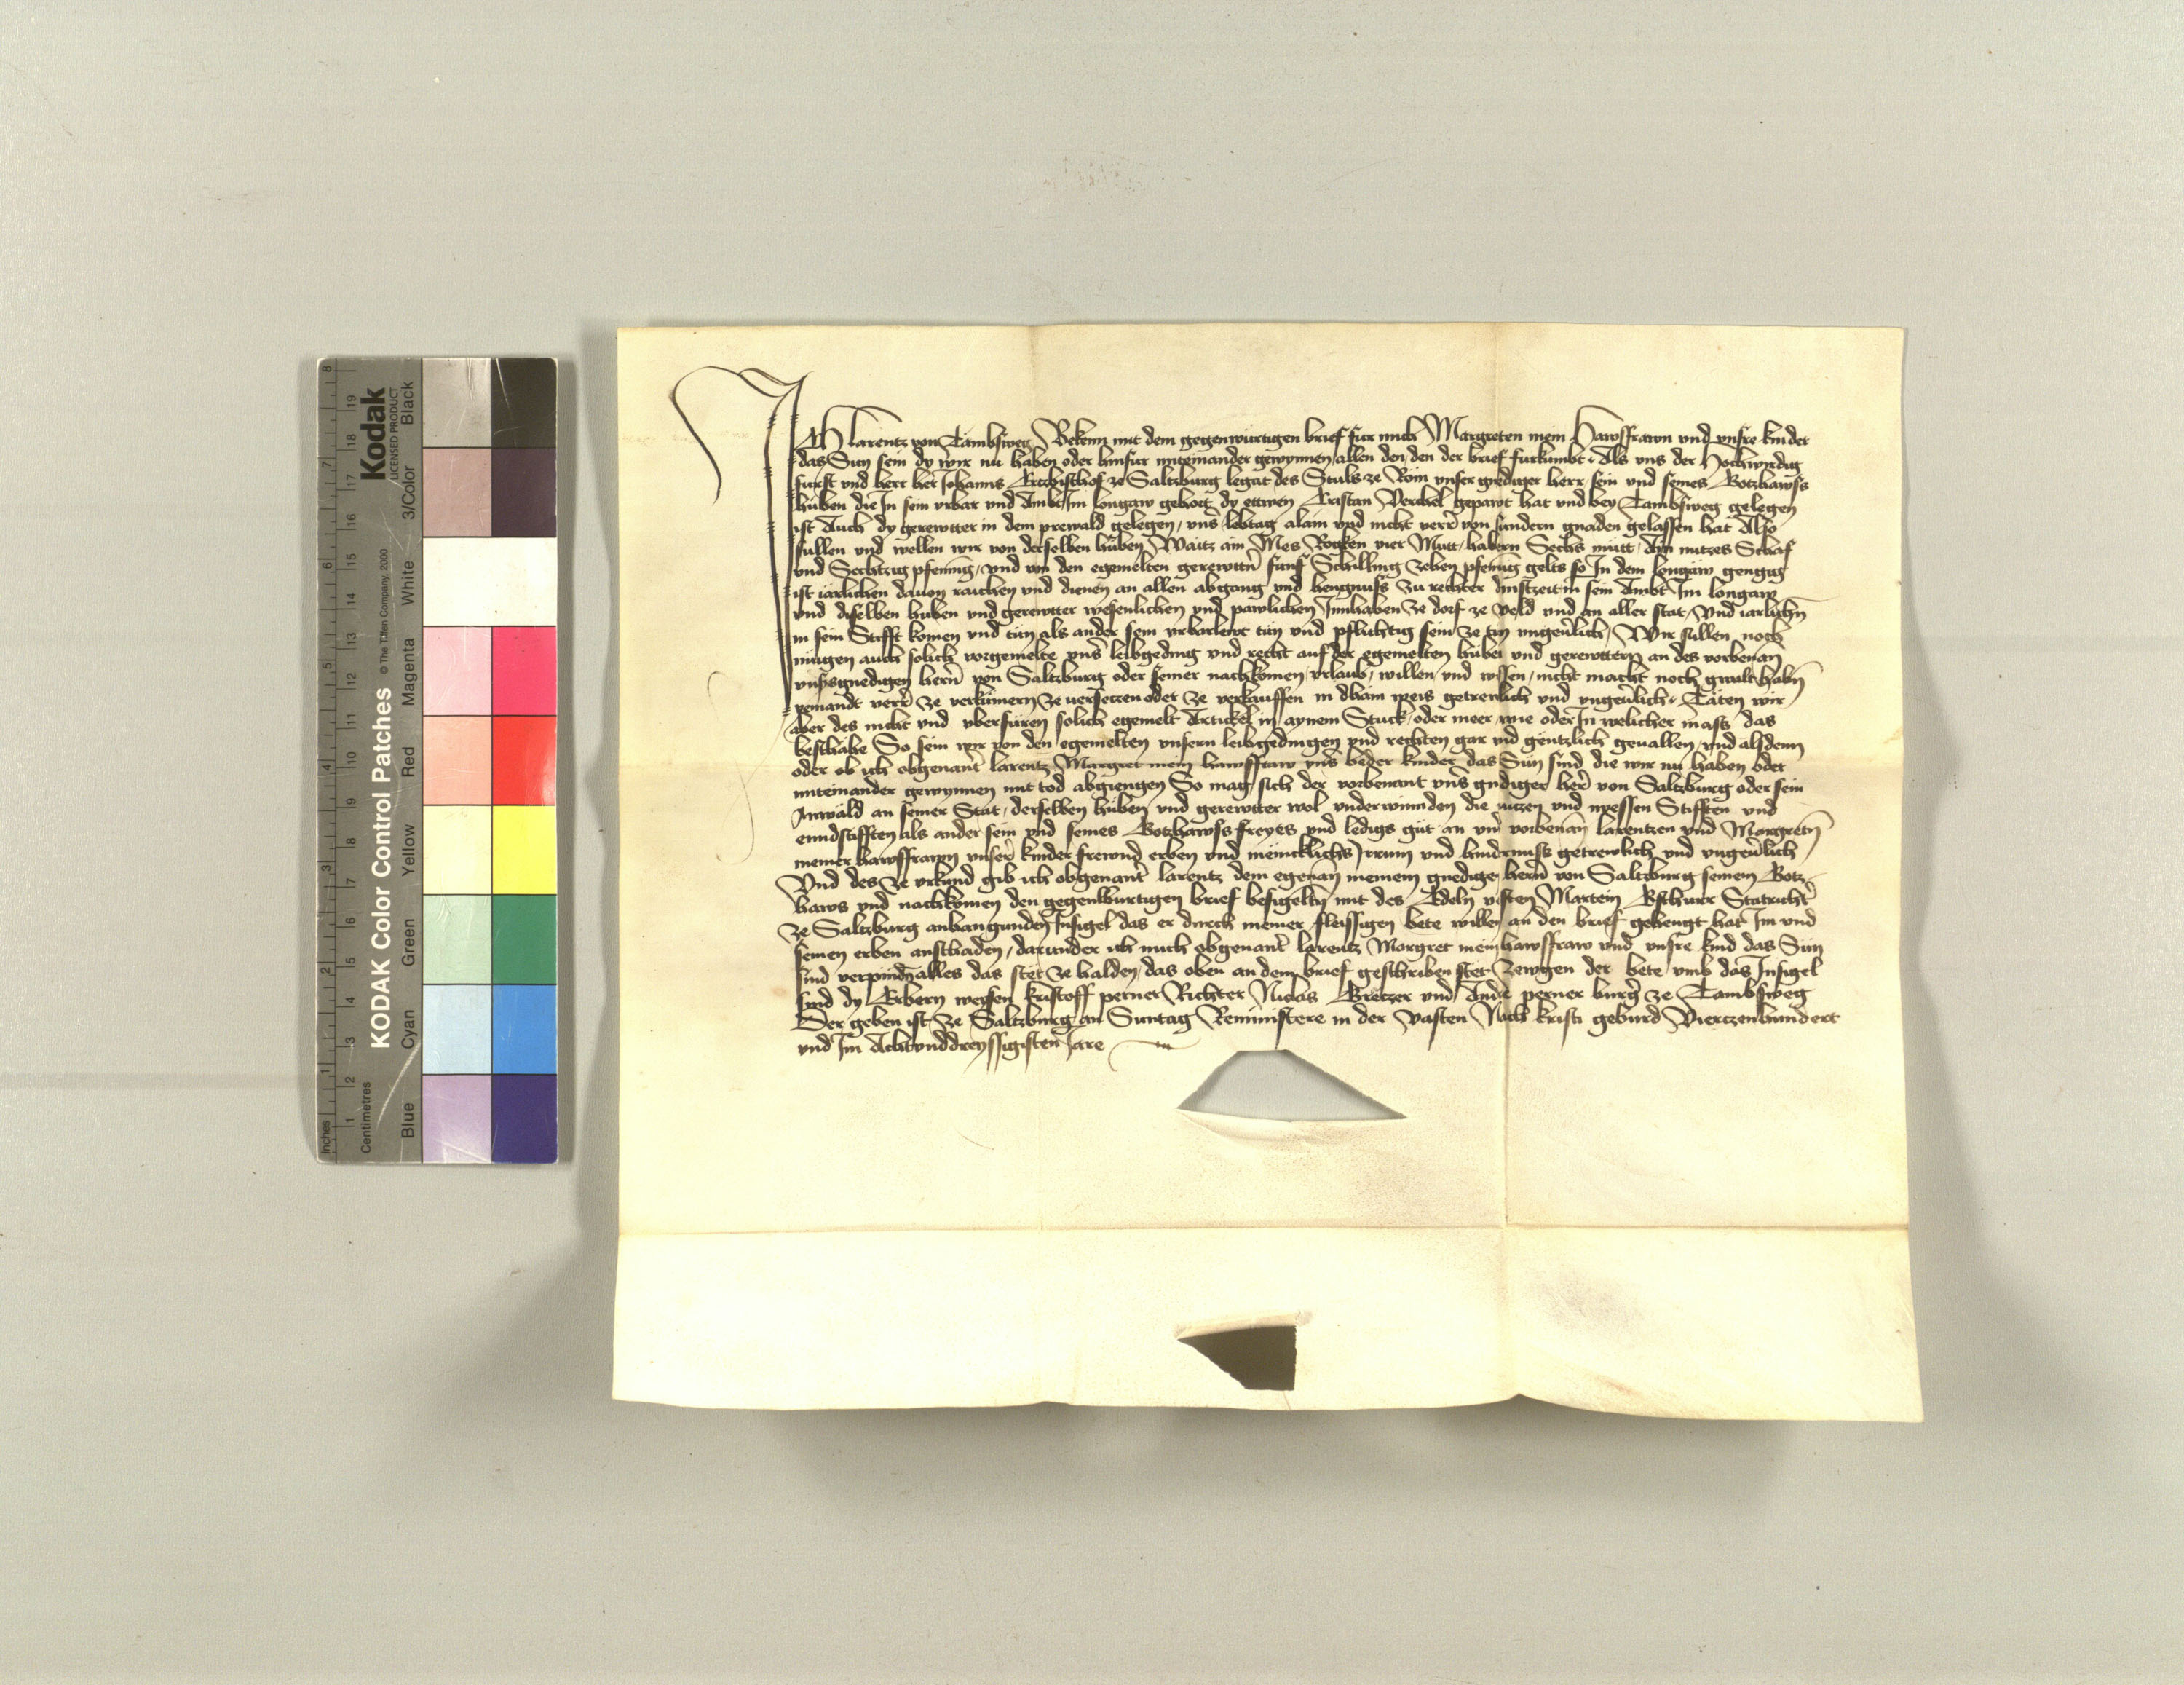 Ich Larentz von Tambsweg Bekenn mit dem gegenwurtigen brief fur mich Margreten mein Hawsfrawn und unsre kinder
das Sun sein dy wir nu haben oder hinfur miteinander gewynnen allen den den der brief furkumbt Als uns der Hochwirdig
furst und herr her Johanns Ertzbischof ze Saltzburg legat des Stuls ze Rom unser gnediger herr sein und seines Gotzhawss
huben die In sein urbar und Ambt Im longaw gehort dy ettwen Kristan Verchel gepawt hat und bey Tambsweg gelegen
ist Auch dy gerewtter in dem prewald gelegen uns lebtag alain und nicht verrer von sundern gnaden gelassen hat Also
sullen und wellen wir von derselben huben Waitz ain Mes Rokken vier Mutt habern Sechs mutt Ain nutzes Schaf
und Sechtzig pfennig und von den egemelten gerewttern funf Schilling zehen pfennig gelts so In dem longaw gengig
ist iarlichen dauon raichen und dienen an allen abgang und hengnuss zu rechter dinstzeit in sein Ambt Im longaw
und dieselben huben und gerewtter wesenlichen und pawlichen Innhaben ze dorf ze veld und an aller stat Und iarlichn
in sein Stifft komen und tun als ander sein urbarlewt tun und pflichtig sein ze tun ungeuerlich Wir sullen noch
mugen auch solich vorgemelte unser leibgeding und recht auf der egemelten huben und gerewttern an des vorbenan
unsers gnedigen herrn von Saltzburg oder seiner nachkomen urlaub willen und wissen nicht macht noch gwalt habn
yemandt verrer ze verkumern ze uersetzen oder ze verkauffen in dhain weis getrewlich und ungeuerlich Taten wir
aber des nicht und uberfuren solich egemelt Artickel in aynem Stuck oder meer wie oder In welicher mass das
beschahe So sein wir von den egemelten unsern leibgedingen und rechten gar und gentzlich geuallen und alsdenn
oder ob ich obgenanter larentz Margret mein hawsfraw unser beder kinder das Sun sind die wir nu haben oder
miteinander gewynnen mit tod abgiengen So mag sich der vorbenant unser gnediger herr von Saltzburg oder sein
Anwald an seiner Stat derselben huben und gerewtter wol underwinnden die nutzen und niessen Stifften und
enndstifften als ander sein und seines Gotzhawss freyes und ledigs gut an unser vorbenan larentzen und Margreten
meiner hawsfrawn unserer kinder frewnd erben und menicklichs Irrum und hindernuss getrewlich und ungeuerlich
Und des ze urkund gib ich obgenanter larentz dem egenan meinem gnedigen herrn von Saltzburg seinem Gotz
haws und nachkomen den gegenburtigen brief besigelten mit des Edeln vesten Martein Aschurr Statrichter
ze Saltzburg anhangunden Insigel das er durch meiner fleissigen bete willen an den brief gehengt hat Im und
seinen erben anschaden darunder ich mich obgenanter larentz Margret mein hawsfraw und unsre kind das Sun
sind verpinden alles das stet ze halden das oben an dem brief geschriben stet Zewgen der bete umb das Insigel
sind dy Erbern weysen kristoff perner Richter Niclas Gretzer und Andre perner burger ze Tambsweg
Der geben ist ze Saltzburg an Suntag Reministere in der Vasten Nach kristi geburd Viertzenhundert
und Im Achtunddreyssigisten Jare
KODAK Color Control Patches © The Tiffen Company, 2000
Kodak
LICENSED PRODUCT
Inches 1 2 3 4 5 6 7 8
Centimetres 1 2 3 4 5 6 7 8 9 10 11 12 13 14 15 16 17 18 19
Blue Cyan Green Yellow Red Magenta White 3/Color Black